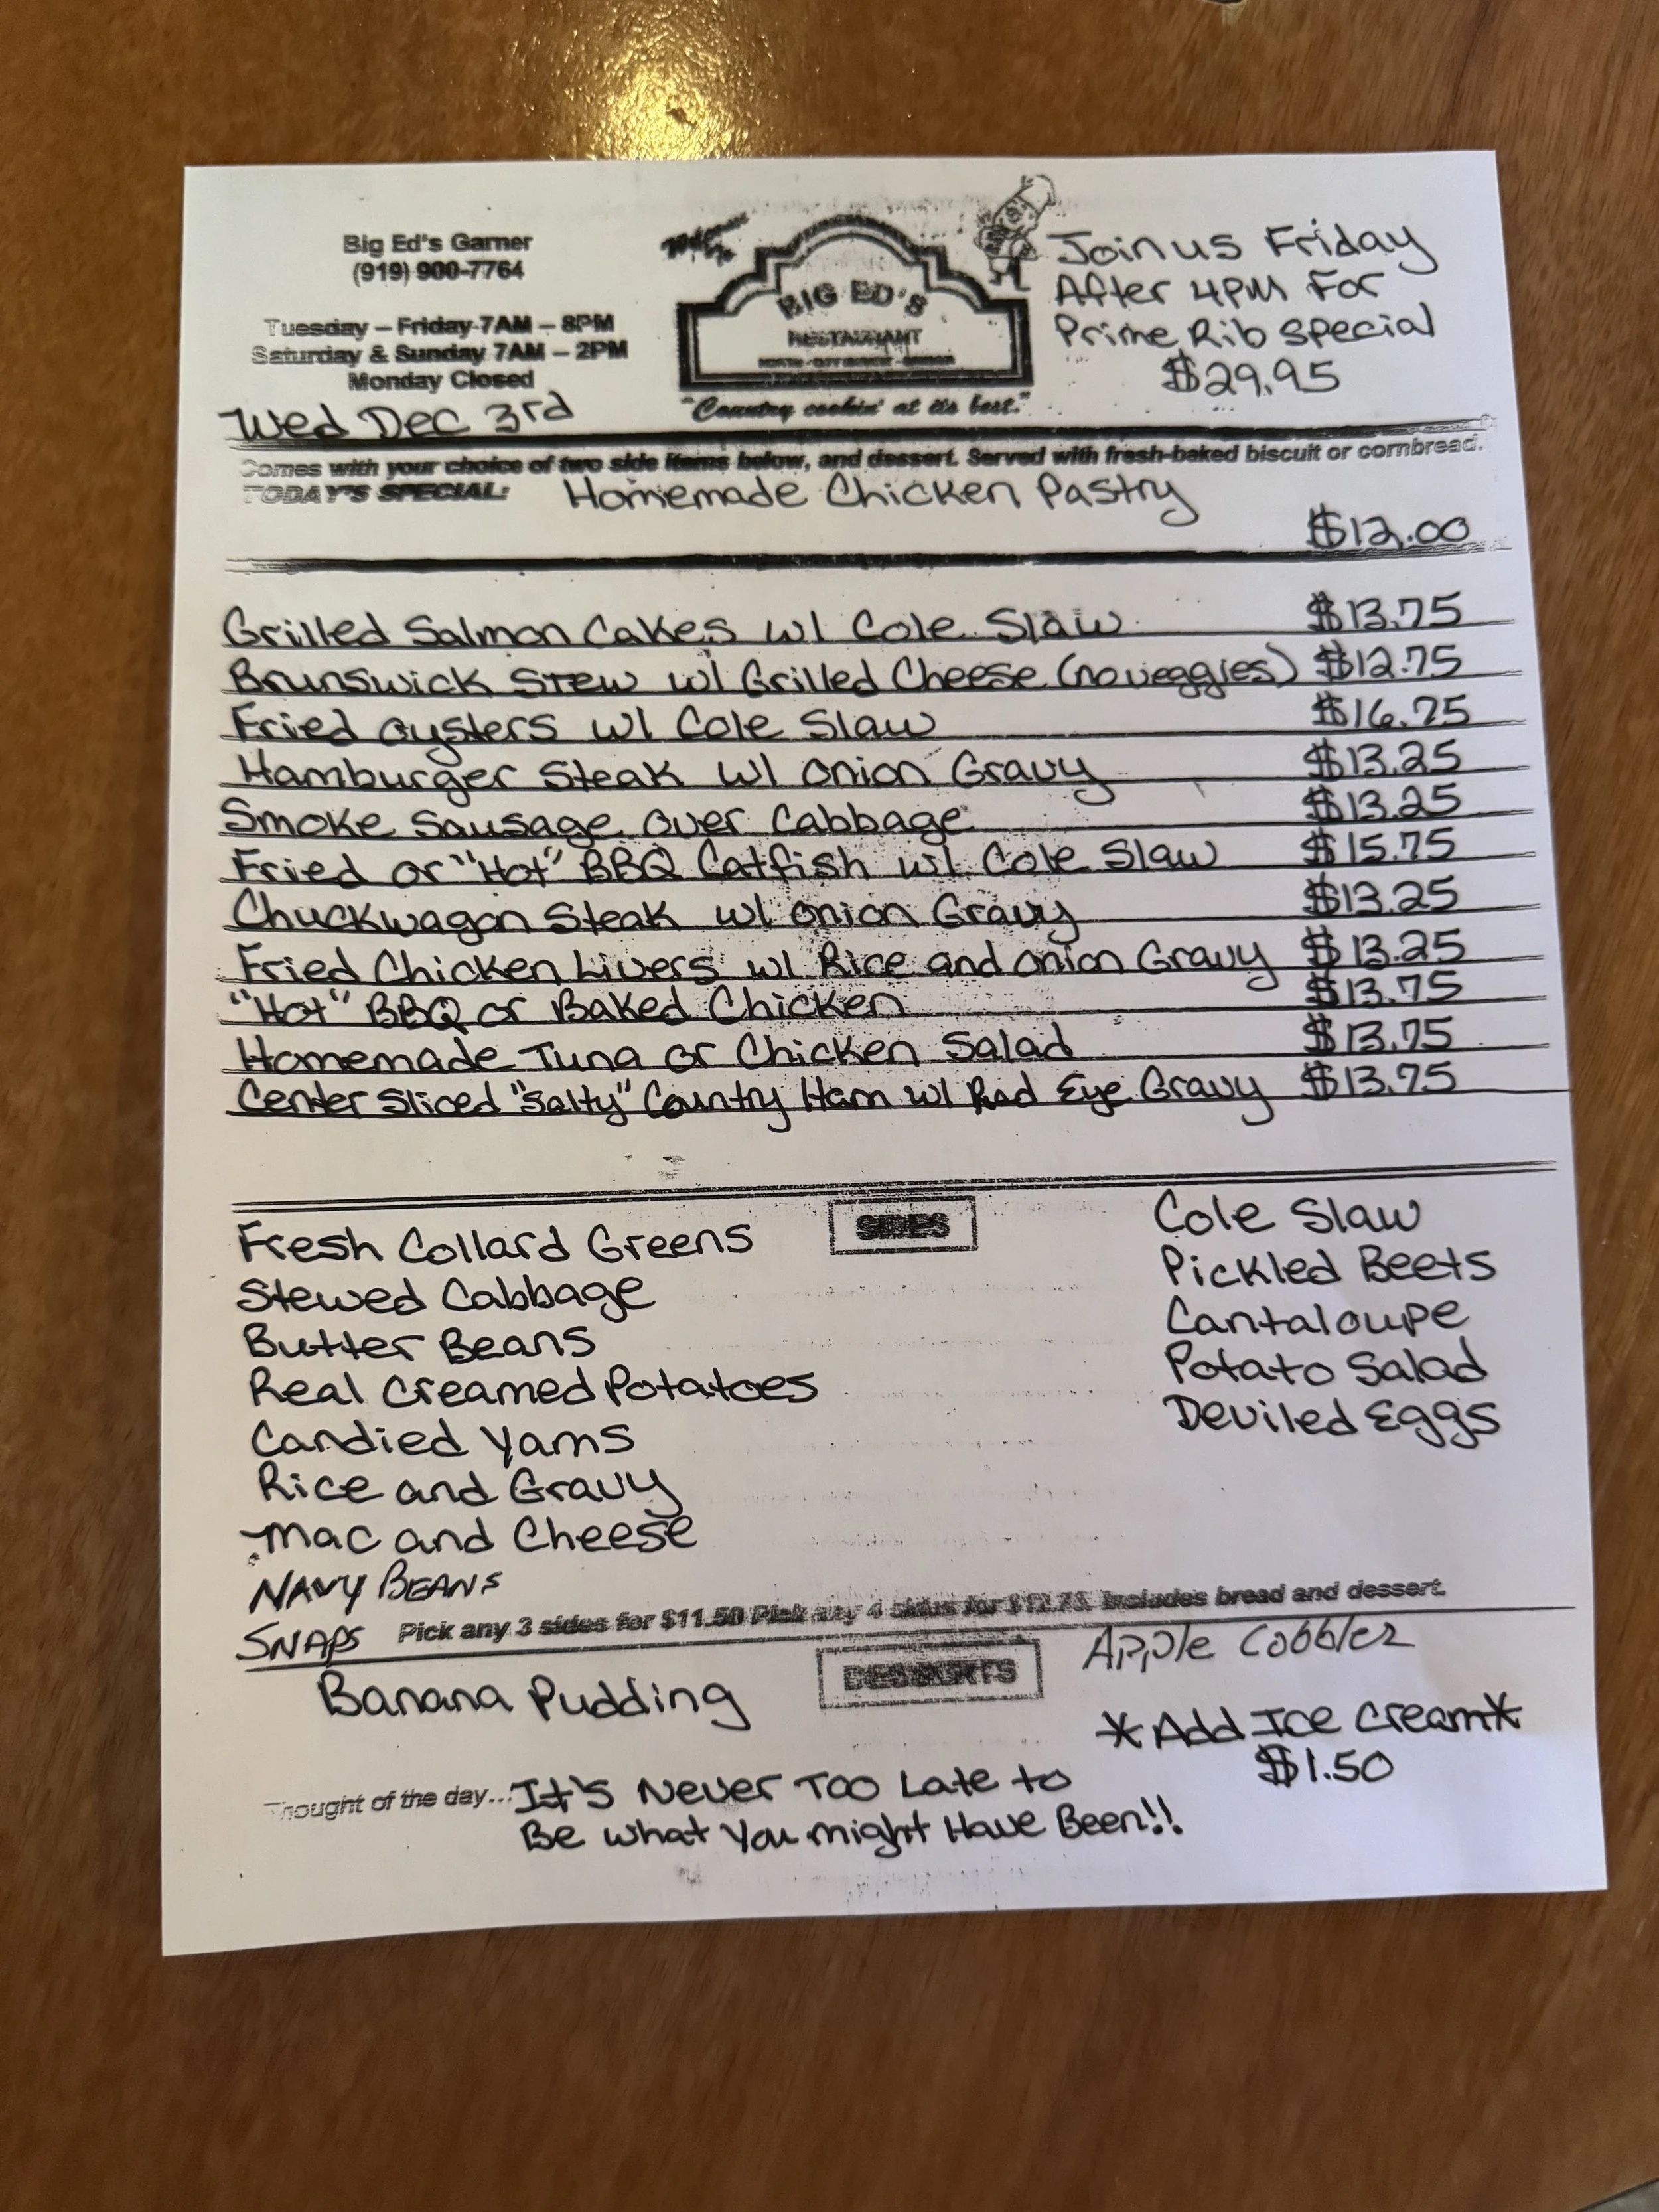 Big Ed's Garner
(919) 900-7764
Tuesday – Friday 7AM – 8PM
Saturday & Sunday 7AM – 2PM
Monday Closed
Wed Dec 3rd
Welcome To
BIG ED'S
RESTAURANT
"Country cookin' at its best."
Join us Friday
After 4PM For
Prime Rib Special
$29.95
Comes with your choice of two side items below, and dessert. Served with fresh-baked biscuit or cornbread.
TODAY'S SPECIAL: Homemade Chicken Pastry
$12.00
Grilled Salmon Cakes w/ Cole Slaw $13.75
Brunswick Stew w/ Grilled Cheese (no veggies) $12.75
Fried oysters w/ Cole Slaw $16.75
Hamburger Steak w/ onion Gravy $13.25
Smoke Sausage over Cabbage $13.25
Fried or "Hot" BBQ Catfish w/ Cole Slaw $15.75
Chuckwagon Steak w/ onion Gravy $13.25
Fried Chicken Livers w/ Rice and onion Gravy $13.25
"Hot" BBQ or Baked Chicken $13.75
Homemade Tuna or Chicken Salad $13.75
Center Sliced "Salty" Country Ham w/ Red Eye Gravy $13.75
SIDES
Fresh Collard Greens
Stewed Cabbage
Butter Beans
Real Creamed Potatoes
Candied Yams
Rice and Gravy
Mac and Cheese
NAVY BEANS
SNAPS
Cole Slaw
Pickled Beets
Cantaloupe
Potato Salad
Deviled Eggs
Pick any 3 sides for $11.50 Pick any 4 sides for $12.75. Includes bread and dessert.
DESSERTS
Banana Pudding
Apple Cobbler
*Add Ice Cream*
$1.50
Thought of the day... It's Never Too Late to
Be what You might Have Been!!